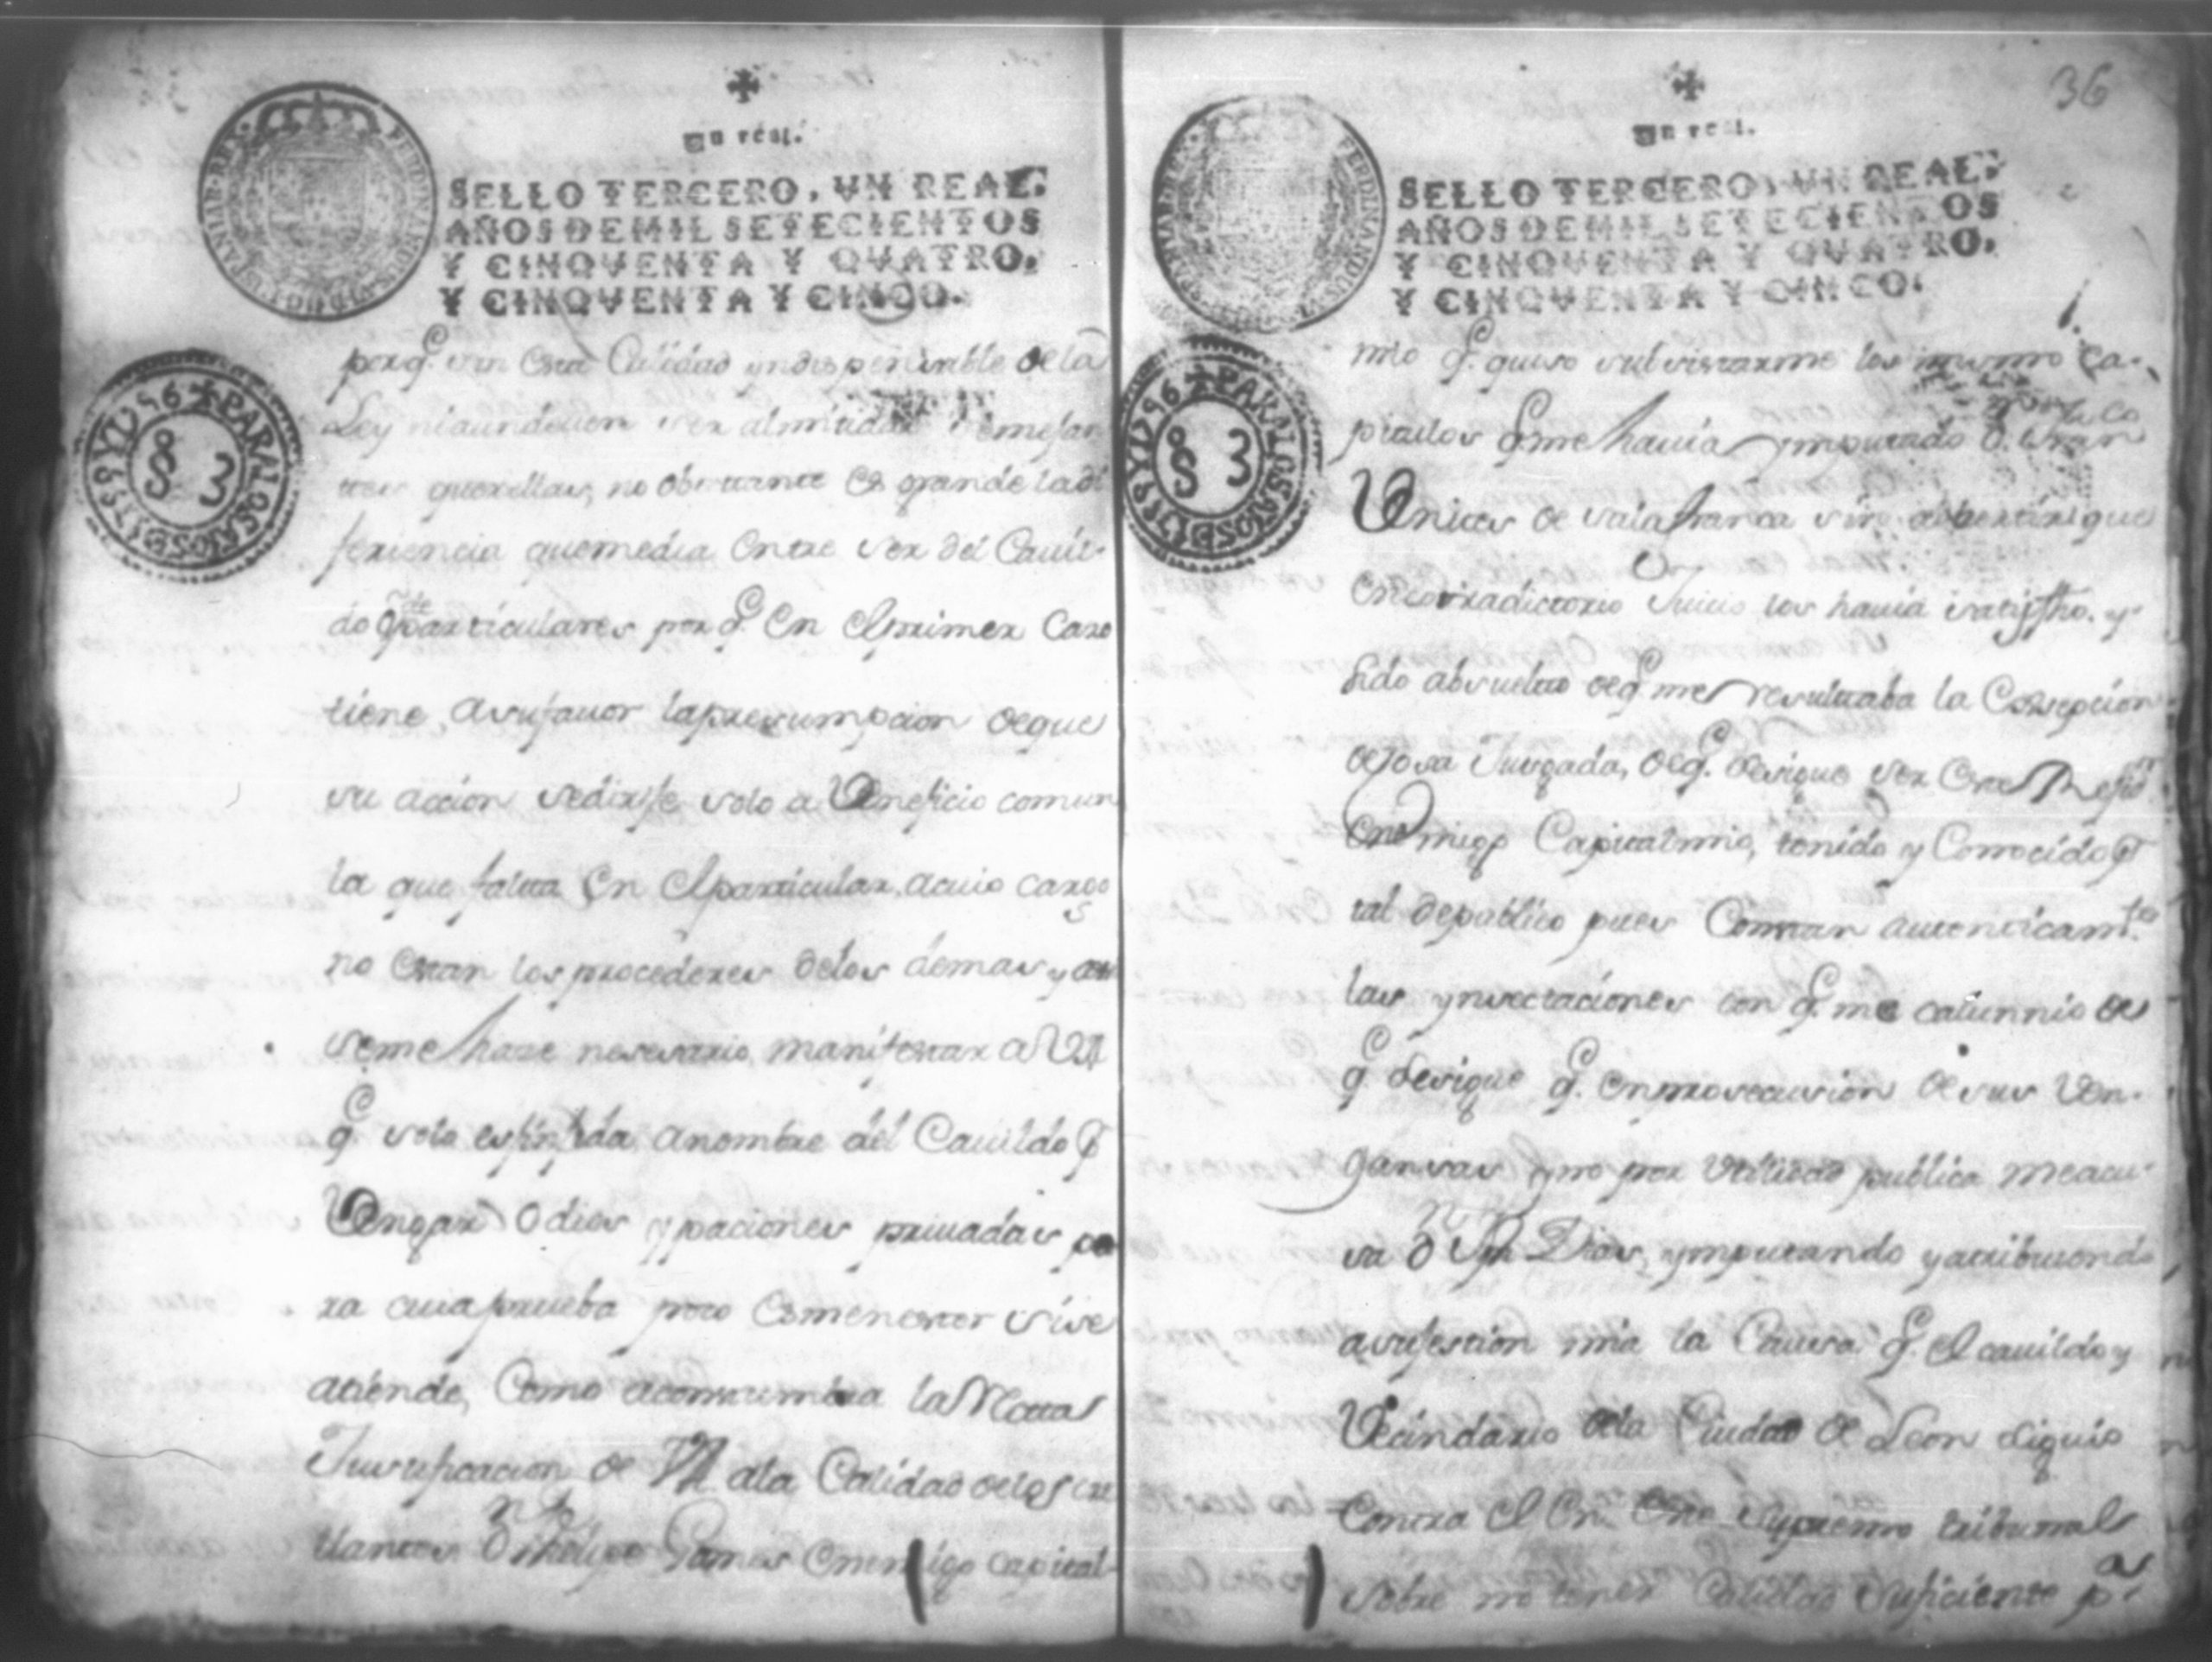 Un real.
SELLO TERCERO, VN REAL.
AÑOS DE MIL SETECIENTOS
Y CINQVENTA Y QVATRO,
Y CINQVENTA Y CINCO.
PARA LOS AÑOS D 1795 Y 1796
S 3
porq.e sin esta Calidad yndispensable de la
Ley ni aun deven ser admitidas semejan
tes querellas, no obstante es grande la di
feriencia que media entre ser del Cavil-
do particulares por q.e en el primer caso
tiene a su favor la presumpcion de que
su accion se dirije solo a Veneficio comun
la que falta en el particular, a cuio cargo
no estan los procederes de los demas y
se me haze nesesario manifestar a VA
q.e solo a nombre del Cavildo
Vengar Odios y paciones privadas pa
ra cuia prueba poco es menester si se
atiende, como acostumbra la Recta
Justificacion de VA a la Calidad de los
llantes Dn Phelipe Gamés enemigo capital
36
Un real.
SELLO TERCERO, VN REAL.
AÑOS DE MIL SETECIENTOS
Y CINQVENTA Y QVATRO,
Y CINQVENTA Y CINCO.
PARA LOS AÑOS D 1795 Y 1796
S 3
mio q.e quiso subsistarme los mismo ca-
pitulos q.e me havia ymputado D.
Venites de salafranca sin advertir que
en contradictorio Juicio los havia satisfho. y
sido absuelto de q.e me resultaba la Consepcion
de Cosa Jusgada, de q.e se sigue ser este
enemigo Capital mio, tenido y Conocido
tal de publico pues Constan autenticam.te
las ynvectaciones con q.e me calumnió de
q.e se sigue q.e en prosecusion de sus Ven-
gansas y no por Utilidad publica me acu-
sa Dn Dias, ymputando y atribuiendo
a sujestion mia la Causa q.e el cavildo y
Vecindario de la Ciudad de Leon siguio
Contra el en este Supremo tribunal
sobre no tener Calidad suficiente p.a